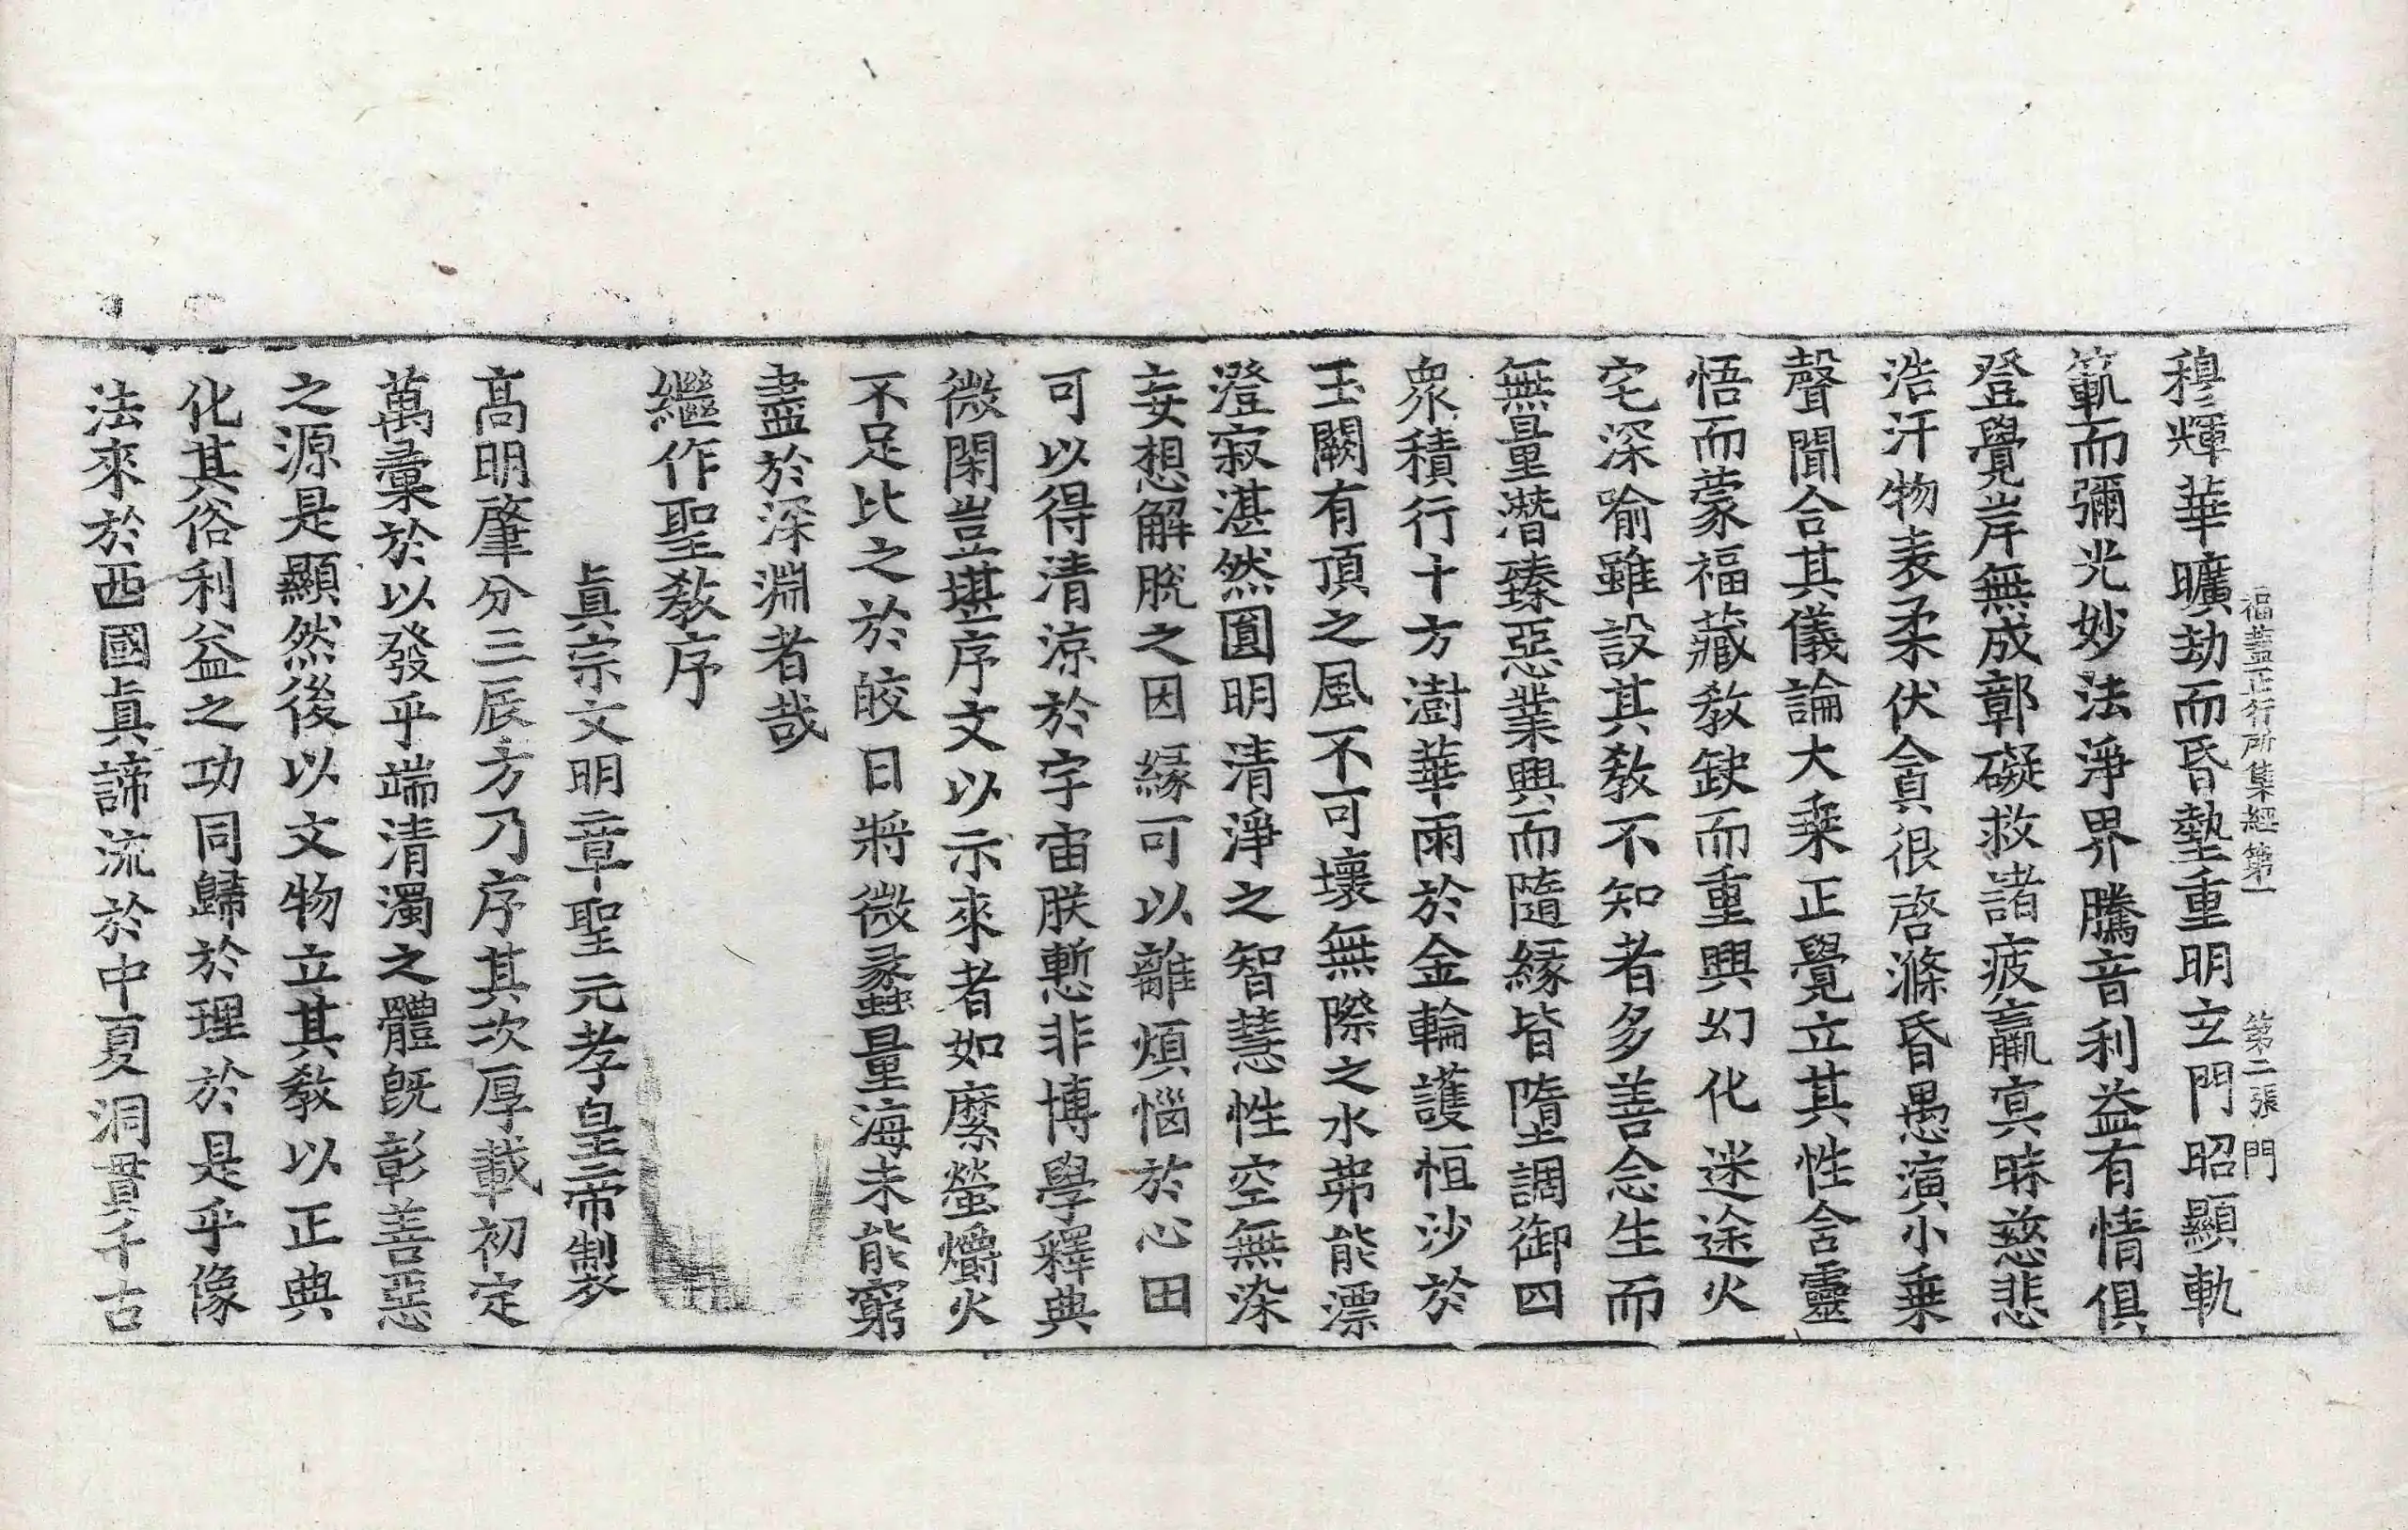 福蓋正行所集經第一 第二張 門
穆輝華曠劫而昏墊重明玄門昭顯軌
範而彌光妙法淨界騰音利益有情俱
登覺岸無成鄣礙救諸疲羸㝠昧慈悲
浩汗物表柔伏貪很啓滌昏愚演小乗
聲聞合其儀論大乗正覺立其性含靈
悟而蒙福藏教缺而重興幻化迷途火
宅深喻雖設其教不知者多善念生而
無量潜臻惡業興而隨緣皆墮調御四
衆積行十方澍華雨於金輪護恒沙於
玉闕有頂之風不可壞無際之水弗能漂
澄寂湛然圎明清淨之智慧性空無染
妄想解脫之因緣可以離煩惱於心田
可以得清涼於宇宙朕慙非博學釋典
微閑豈堪序文以示來者如縻螢爝火
不足比之於皎日將微蠡量海未能窮
盡於深淵者哉
繼作聖教序
眞宗文明章聖元孝皇帝製
高明肇分三辰方乃序其次厚載初定
萬彙於以發乎端清濁之體旣彰善惡
之源是顯然後以文物立其教以正典
化其俗利益之功同歸於理於是乎像
法來於西國眞諦流於中夏洞貫千古